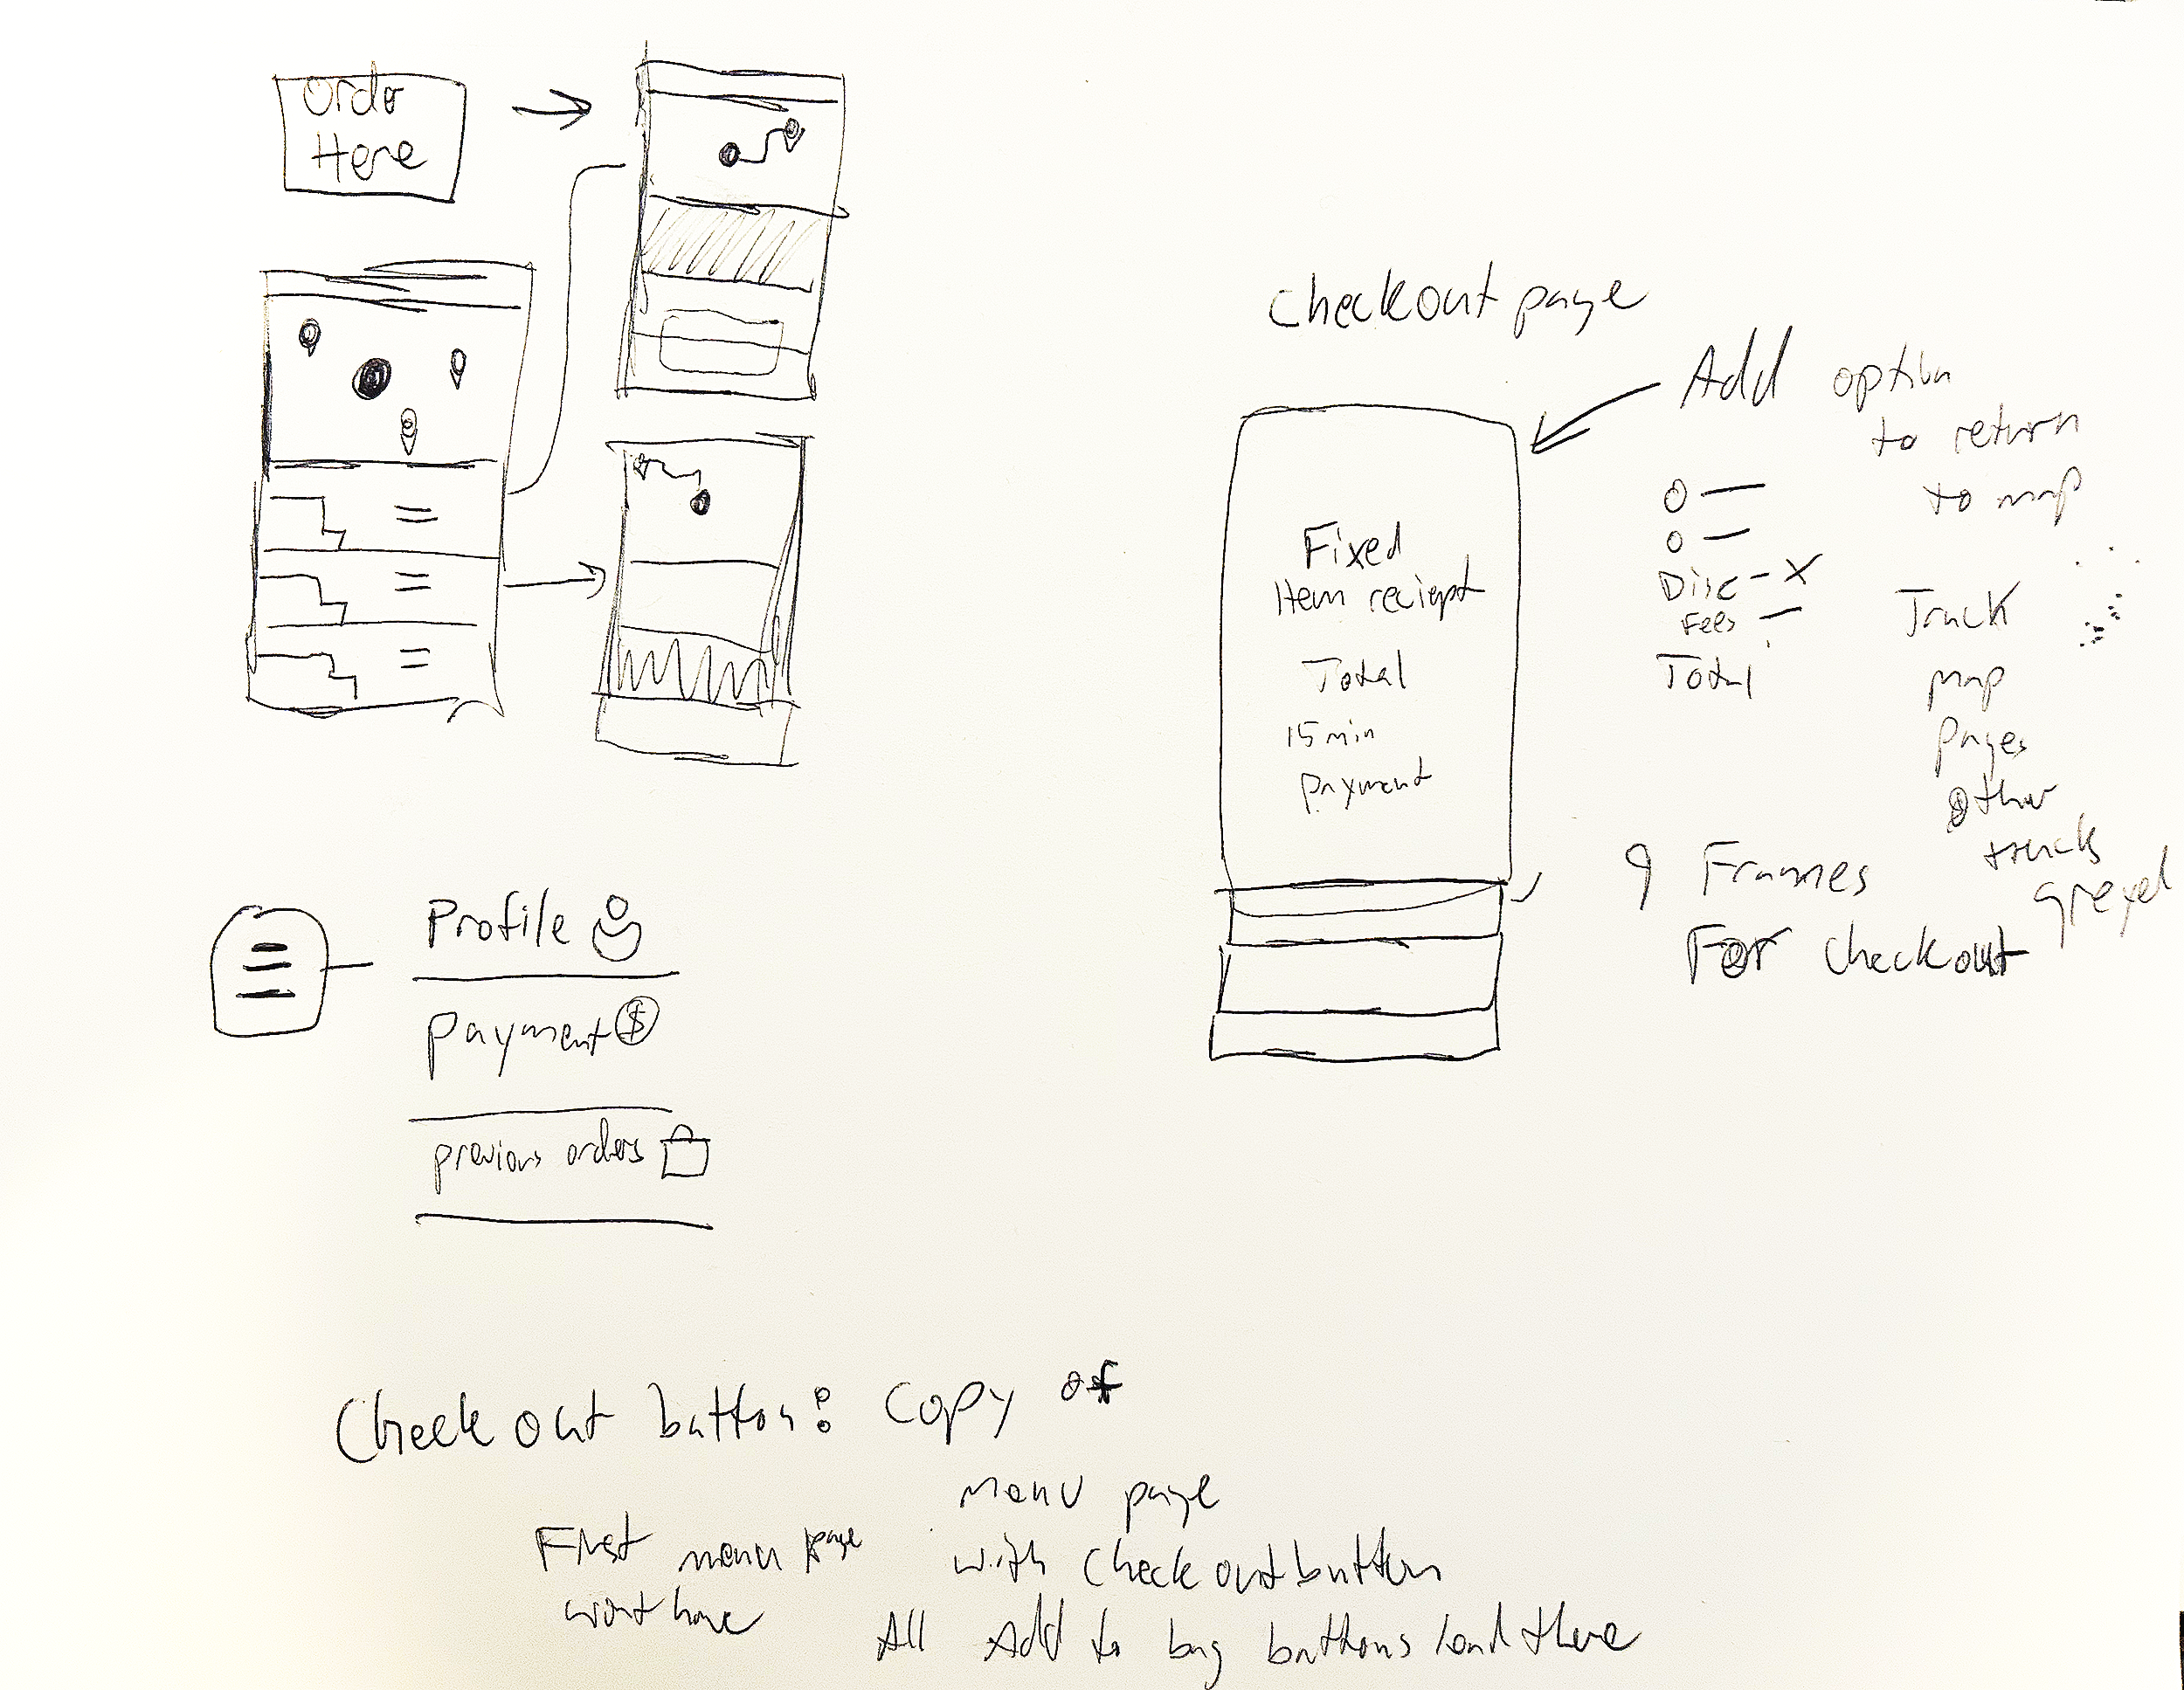 Order
Here
Checkout page
Add option
to return
to map
Fixed
Item reciept
Total
15 min
payment
Disc - X
Fees —
Total
Truck
map
pages
other
trucks
greyed
9 Frames
For checkout
Profile
payment $
previous orders
Check out button: copy of
menu page
with checkout button
First menu page
wont have
All Add to bag buttons lead there